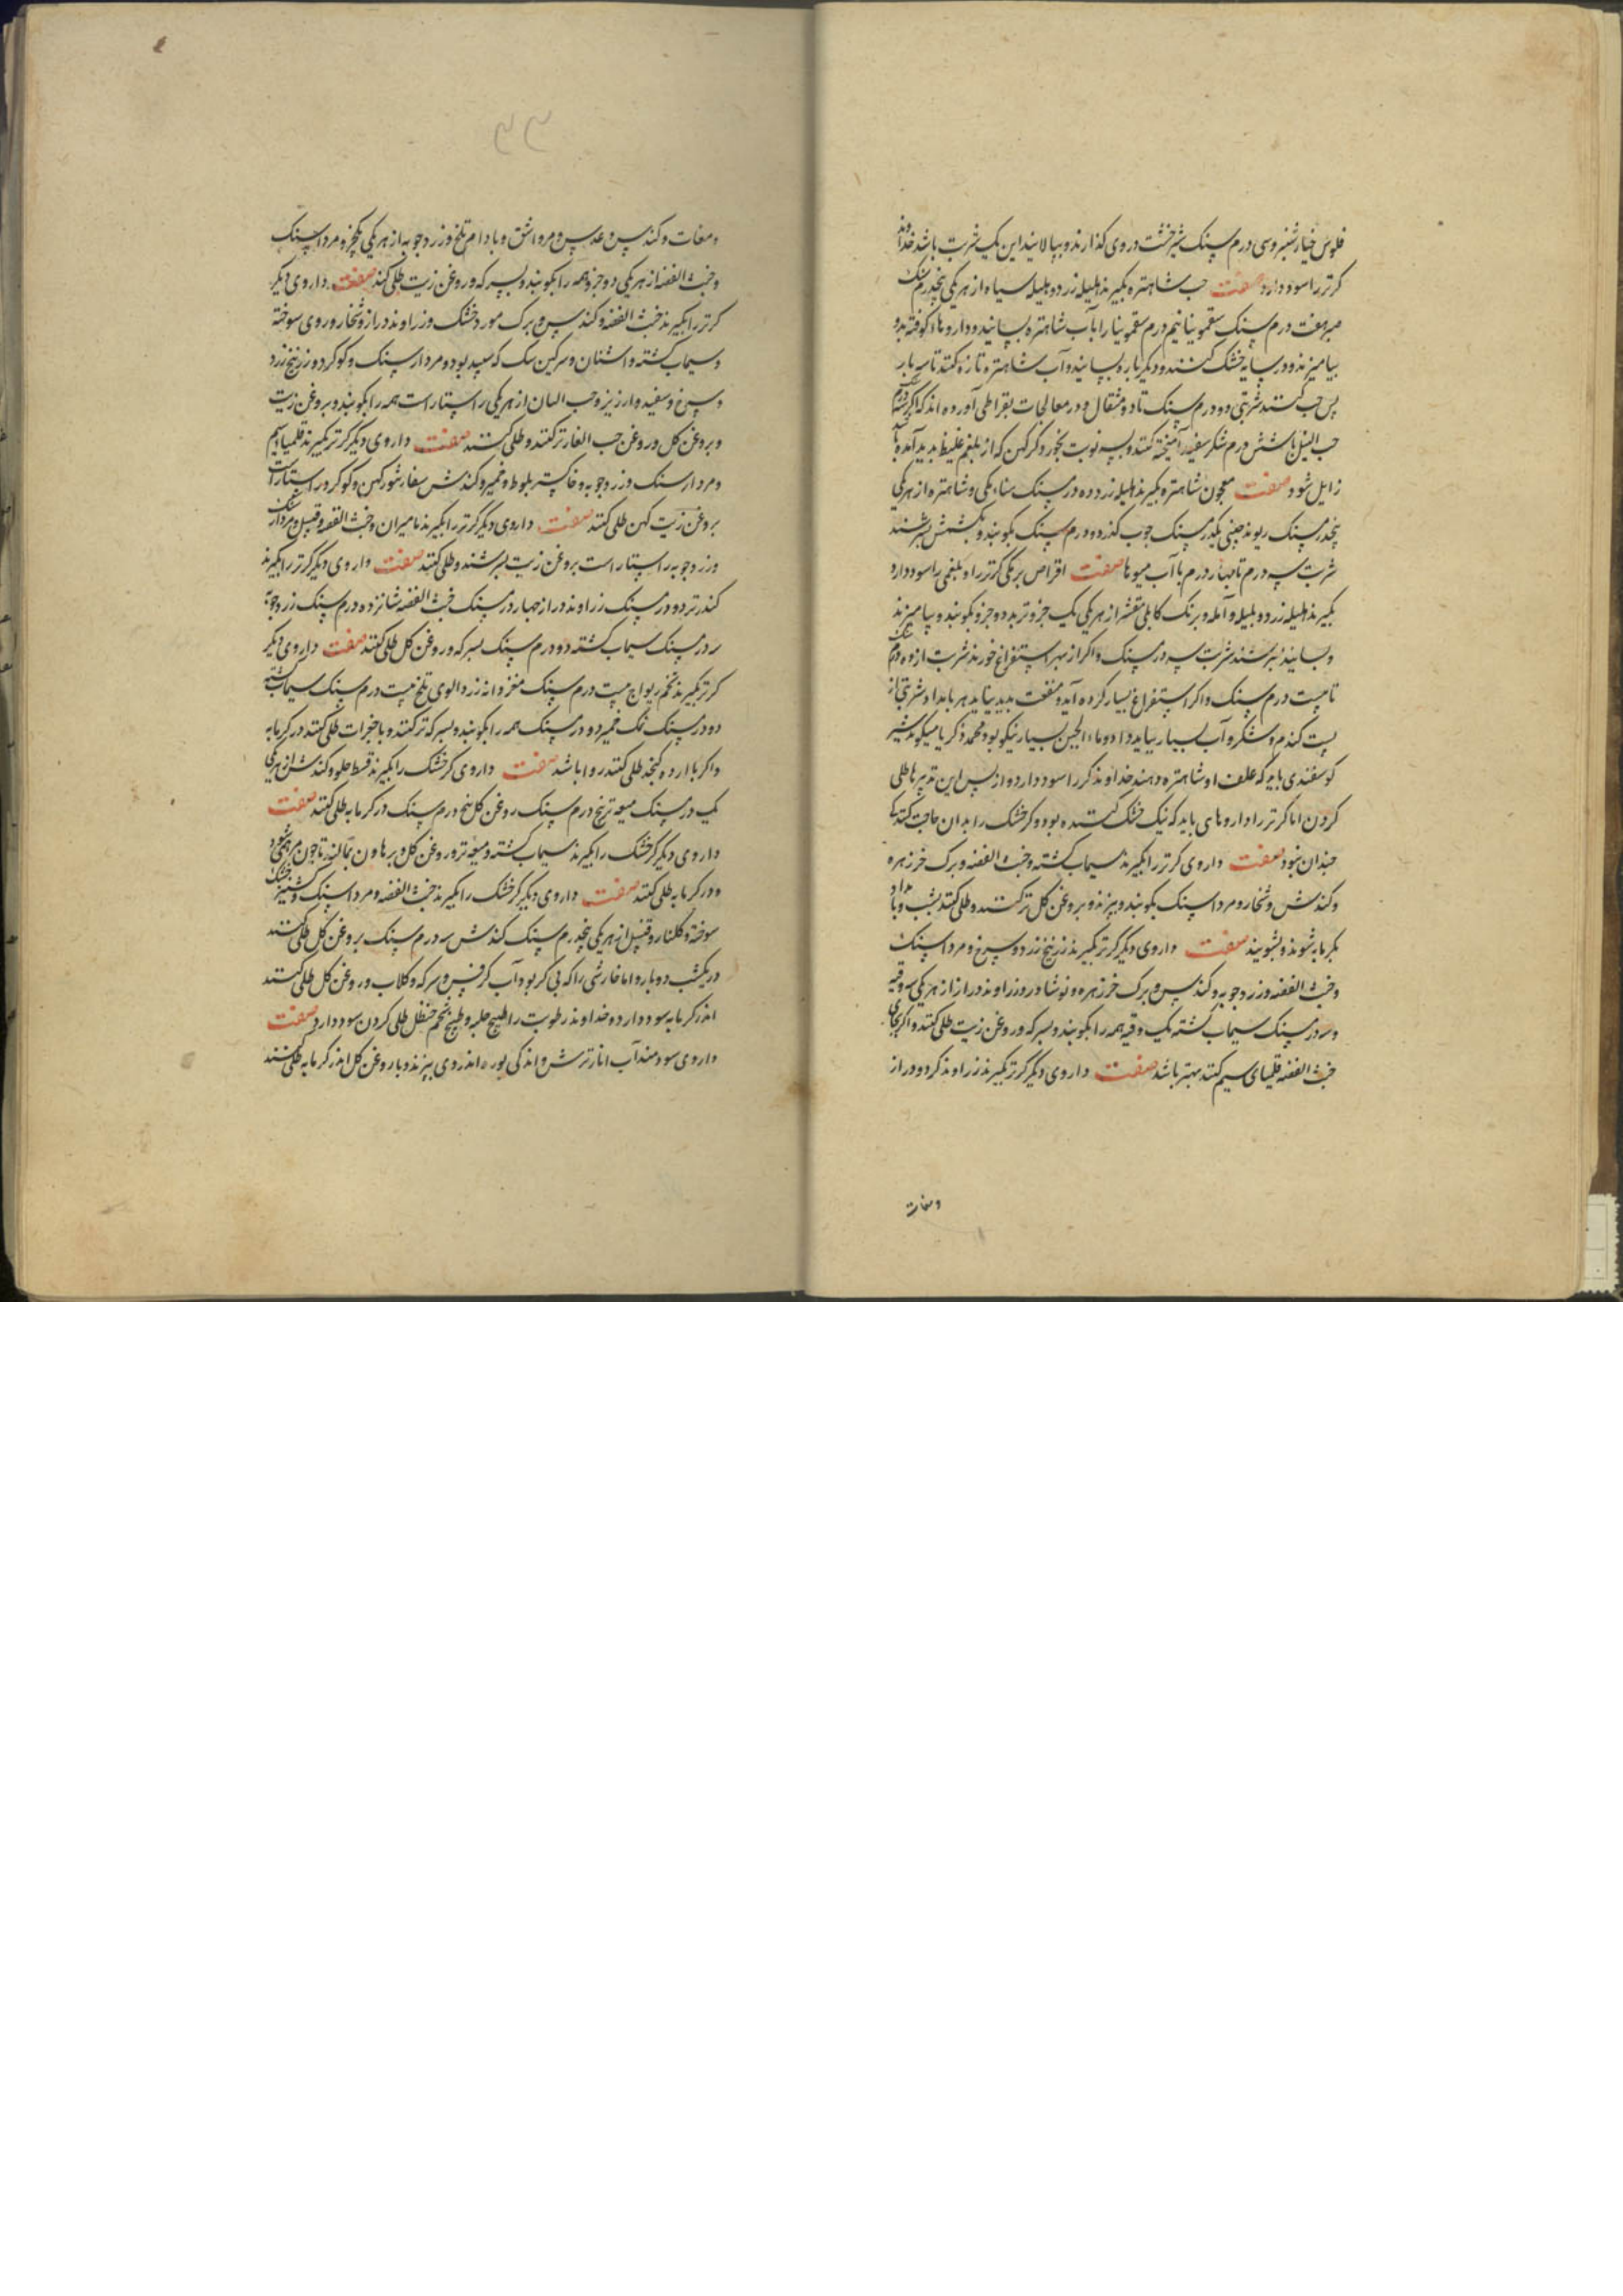 فلوس خیارشنبر وسی درم سنک شیرخشت در وی کذارند و بپالایند این یک شربت باشد خداوند
کر تر را سود دارد صفت حب شاهتره بکیرند هلیله زرد و هلیله سیاه از هر یکی پنجدرم سنک
صبر هفت درم سنک سقمونیا نیم درم سقمونیا را باآب شاهتره بسایند و داروها کوفته بدو
بیامیزند و در سایه خشک کنند و دیکر باره بسایند و آب شاهتره تازه کنند تا سه بار
پس حب کنند شربتی دو درم سنک تا دو مثقال و در معالجات بقراطی آورده اند که اکر سه درم
حب النیل با شش درم شکر سفید آمیخته کنند و بسه نوبت بخورد کر کهن که از بلغم غلیظ پدید آمده باشد
زایل شود صفت معجون شاهتره بکیرند هلیله زرد ده درم سنک سناء مکی و شاهتره از هر یکی
پنجدرم سنک ریوند چینی یکدرم سنک بکوبند و بکشمش بسرشند
شربت سه درم تا چهار درم با آب میوها صفت اقراص برمکی کر تر را و بلغمی را سود دارد
بکیرند هلیله زرد و بلیله و آمله و برنک کابلی مقشر از هر یکی یک جزو تربد دو جزو بکوبند و بیامیزند
و بسایند و بسرشند شربت سه درم سنک و اکر از بهر استفراغ خورند شربت از ده درم
تا بیست درم سنک و اکر استفراغ بسیار کرده آید و منفعت پدید نیاید هر بامداد شربتی از
پست کندم و شکر و آب بسیار بباید داد و ماء الجبن بسیار نیکو بود و محمد زکریا میکوید شیر
کوسفندی باید که علف او شاهتره دهند خداوند کر را سود دارد و از پس این تدبیرها طلی
کردن اما کر تر را داروهای باید که نیک خشک کننده بود و کر خشک را بدان حاجت
چندان نبود صفت داروی کر تر را بکیرند سیماب کشته و خبث الفضه و برک خرزهره
و کندش و شخار و مرداسنک بکوبند و بپزند و بروغن کل تر کنند و طلی کنند بشب و بامداد
بکرمابه شوند و بشویند صفت داروی دیکر کر تر بکیرند زرنیخ زرد و سرخ و مرداسنک
و خبث الفضه و زردجوبه و کندس و برک خرزهره و نوشادر و زراوند دراز از هر یکی سه وقیه
و سه درم سنک سیماب کشته یک وقیه همه را بکوبند و بسرکه و روغن زیت طلی کنند و اکر بجای
خبث الفضه قلیمیای سیم کنند بهتر باشد صفت داروی دیکر کر تر بکیرند زراوند کرد و دراز
ومغات
ومغات و کندس و عدس و مر و اشق و بادام تلخ و زردجوبه از هر یکی یکجزو مرداسنک
و خبث الفضه از هر یکی دو جزو همه را بکوبند و بسرکه و روغن زیت طلی کنند صفت داروی دیکر
کر تر را بکیرند خبث الفضه و کندس و برک مورد خشک و زراوند دراز و شخار و روی سوخته
و سیماب کشته و اشنان و سرکین سک که سپید بود و مردارسنک و کوکرد و زرنیخ زرد
و سرخ و سفیده ارزیز و حب البان از هر یکی راستاراست همه را بکوبند و بروغن زیت
و بروغن کل و روغن حب الغار تر کنند و طلی کنند صفت داروی دیکر کر تر بکیرند قلیمیا سیم
و مردارسنک و زردجوبه و خاکستر بلوط و خمیر و کندش سفار شور کهن و کوکرد راستاراست
بروغن زیت کهن طلی کنند صفت داروی دیکر کر تر را بکیرند مامیران و خبث الفضه و قنبیل و مردارسنک
و زردجوبه راستاراست بروغن زیت بسرشند و طلی کنند صفت داروی دیکر کر تر را بکیرند
کندر تر دو درم سنک زراوند دراز چهار درم سنک خبث الفضه شانزده درم سنک زردجوبه
سه درم سنک سیماب کشته دو درم سنک بسرکه و روغن کل طلی کنند صفت داروی دیکر
کر تر بکیرند تخم ریواج بیست درم سنک مغز دانه زردالوی تلخ بیست درم سنک سیماب کشته
دو درم سنک نمک خمیر دو درم سنک همه را بکوبند و بسرکه تر کنند و با حجرات طلی کنند در کرمابه
و اکر با ارده کنجد طلی کنند روا باشد صفت داروی کر خشک را بکیرند قسط حلو و کندش از هر یکی
یک درم سنک میعه تر پنج درم سنک روغن کل پنج درم سنک در کرمابه طلی کنند صفت
داروی دیکر کر خشک را بکیرند سیماب کشته و میعه تر و روغن کل و بر هاون بمالند تا چون مرهمی شود
و در کرمابه طلی کنند صفت داروی دیکر کر خشک را بکیرند خبث الفضه و مرداسنک و کشنیز خشک
سوخته و کلنار و قنبیل از هر یکی پنجدرم سنک کندش سه درم سنک بروغن کل طلی کنند
در یکشب دو بار و اما خارشی را که بی کر بود آب کرفس و سرکه و کلاب و روغن کل طلی کنند
اندر کرمابه سود دارد و خداوند رطوبت را طبیخ حلبه و طبیخ تخم حنظل طلی کردن سود دارد صفت
داروی سودمند آب انار ترش و اندکی بوره اندر وی بپزند و با روغن کل اندر کرمابه طلی کنند